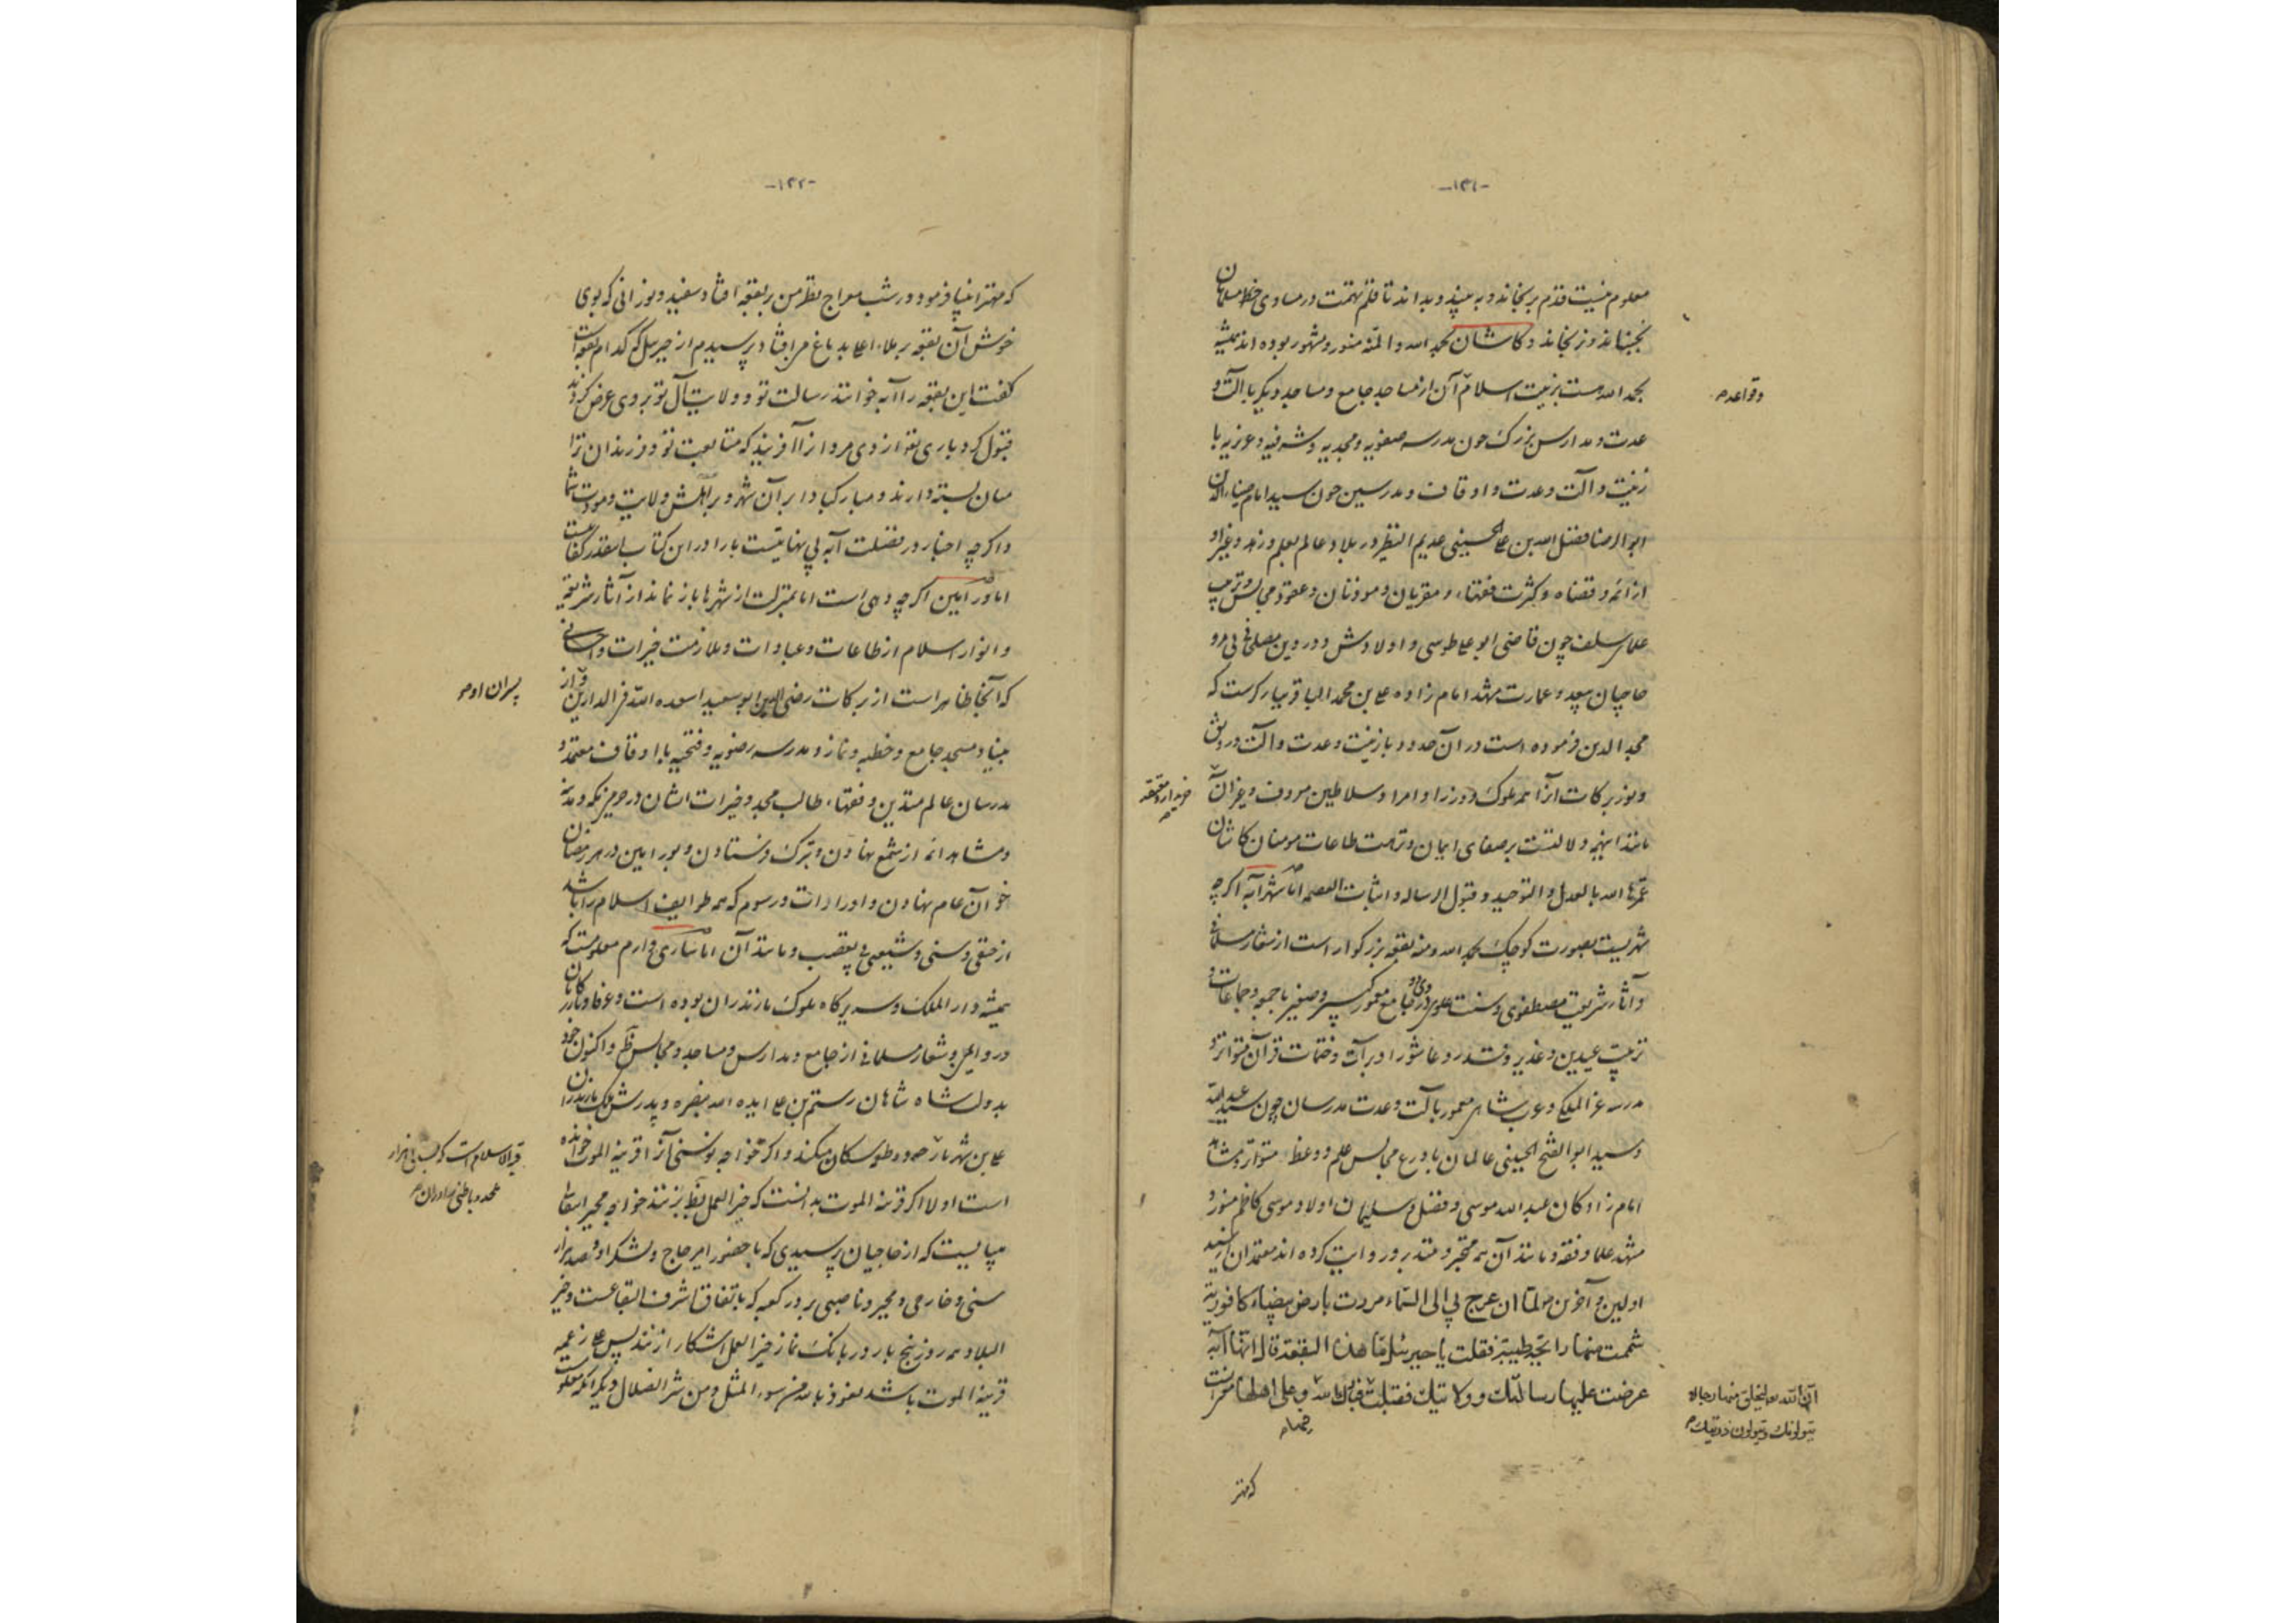 -۱۲۱-
معلوم نیست قدم برنجاند و به بیند و بداند تا قلم تهمت در مساوی خطه مسلمانان
نجنباند و نرنجاند و کاشان بحمد الله و المنه منور و مشهور بوده اند همیشه
بحمد الله هست بزینت اسلام آن از مساجد جامع و مساجد دیگر با آلت و
وقواعد
عدت و مدارس بزرک چون مدرسه صفویه و مجدیه و شرفیه و عزیزیه با
زینت و آلت و عدت و اوقاف و مدرسین چون سید امام ضیاء الدین
ابو الرضا فضل الله بن علی الحسینی عدیم النظیر در بلاد عالم بعلم و زهد و غیر او
از ائمه و قضاه و کثرت فقهاء و مقریان و موذنان و عقود مجالس و ترتیب
علمای سلف چون قاضی ابو علی طوسی و اولادش و درو بین مصلحی
حاجیان بیعد و عمارت مشهد امام زاده علی بن محمد الباقر ببارکرست که
مجد الدین فرموده است در آن حدود با زینت و عدت و آلت و رونق
و نور برکات آنرا همه ملوک و وزرا و امرا و سلاطین معروف و غیر آن
مانند اینهمه دلالتست بر صفای ایمان و نزهت طاعات مومنان کاشان
عمّرها الله بالعدل و التوحید و قبول الرساله و اثبات العصمه اما شهر آبه اکرچه
شهریست بصورت کوچک بحمد الله و منه بقعه بزرکوار است از شعار مسلمانی
و آثار شریعت مصطفوی و سنت علوی و در جامع معمور کبیر و صغیر با جمعه و جماعات
ترتیب عیدین و غدیر و قدر و عاشورا و برات و ختمات قرآن متواتر و
مدرسه عز الملکی و عرب شاهی معمور بآلت و عدت مدرسان چون سید عبد الله
و سید ابو الفتح الحسینی عالمان با ورع مجالس علم و وعظ متواتر و مشاهد
امام زادکان عبد الله موسی و فضل و سلیمان اولاد موسی کاظم منور و
مشهد علما و فقه و مانند آن همه متبحر و متدین و روایت کرده اند معتمدان از سید
اولین و آخرین لما ان عرج بی الی السماء مررت بارض بیضاء کافوریة
شممت منها رایحة طیبة فقلت یا جبرئیل ما هذه البقعة قال انها آبه
عرضت علیها رسالتک و ولایتک فقبلت فبارک الله و علی اهلها
آن الله یخلق منها رجالا
یتولونک و یتولون ذریتک
که مهتر
-۱۲۲-
که مهتر انبیا فرمود در شب معراج نظر من بر بقعه افتاد سفید و نورانی که بوی
خوش آن بقعه بدماغ مرا فتاد پرسیدم از جبرئیل که کدام بقعه است
کفت این بقعه را آبه خوانند رسالت تو و ولایت آل تو بروی عرض کردند
قبول کرد باری تعا از وی مردانرا آفریند که متابعت تو و فرزندان ترا
میان بسته دارند و مبارک باد ابر آن شهر و بر اهلش ولایت و مودت شما
و اکرچه اخبار در فضیلت آبه بی نهایتست ما را در این کتاب اینقدر کفایتست
اما ورامین اکرچه دهی است اما بمنزلت از شهرها باز نماند از آثار شریعت
و انوار اسلام از طاعات و عبادات و ملازمت خیرات و احسانی
که آنجا ظاهر است از برکات رضی الدین ابو سعید اسعده الله فی الدارین و از
پسران او
بنیاد مسجد جامع و خطبه و نماز و مدرسه رضویه و فتحیه با اوقاف معتمد و
مدرسان عالم متدین و فقهاء طالب مجد و خیرات ایشان در حرمین مکه و مدینه
و مشاهد ائمه از شمع نهادن و تبرک فرستادن و بورامین در هر رمضان
خوان عام نهادن و ادرارات و رسوم که همه طوایف اسلام را باشد
از حنفی و سنی و شیعی بی تعصب و مانند آن اما ساری و ارم معلومست که
همیشه دار الملک و سریرکاه ملوک مازندران بوده است
در و ایمن و شعار مسلمانی از جامع و مدارس و مساجد و مجالس و اکنون خود
بدولت شاه شاهان رستم بن علی ایده الله بنصره و پدرش ملک مازندران
علی بن شهریار و اکر خواجه نوسنی آنرا قرینة الموت خوانده
قبة الاسلام است
ملحد و باطنی
است اولا اکر قرینه الموت بدانست که خیر العمل زنند خواجه مجبر
میبایست که از حاجیان پرسیدی که با حضور امیر حاج و لشکر او و صد هزار
سنی و خارجی و مجبر و ناصبی بر در کعبه که باتفاق اشرف البقاعست و خیر
البلاد هر روز پنج بار در بانک نماز خیر العمل اشکارا زنند پس علی زعمه
قرینة الموت باشد نعوذ بالله من سوء المثل و من شر الضلال دیکر آنکه معلومست